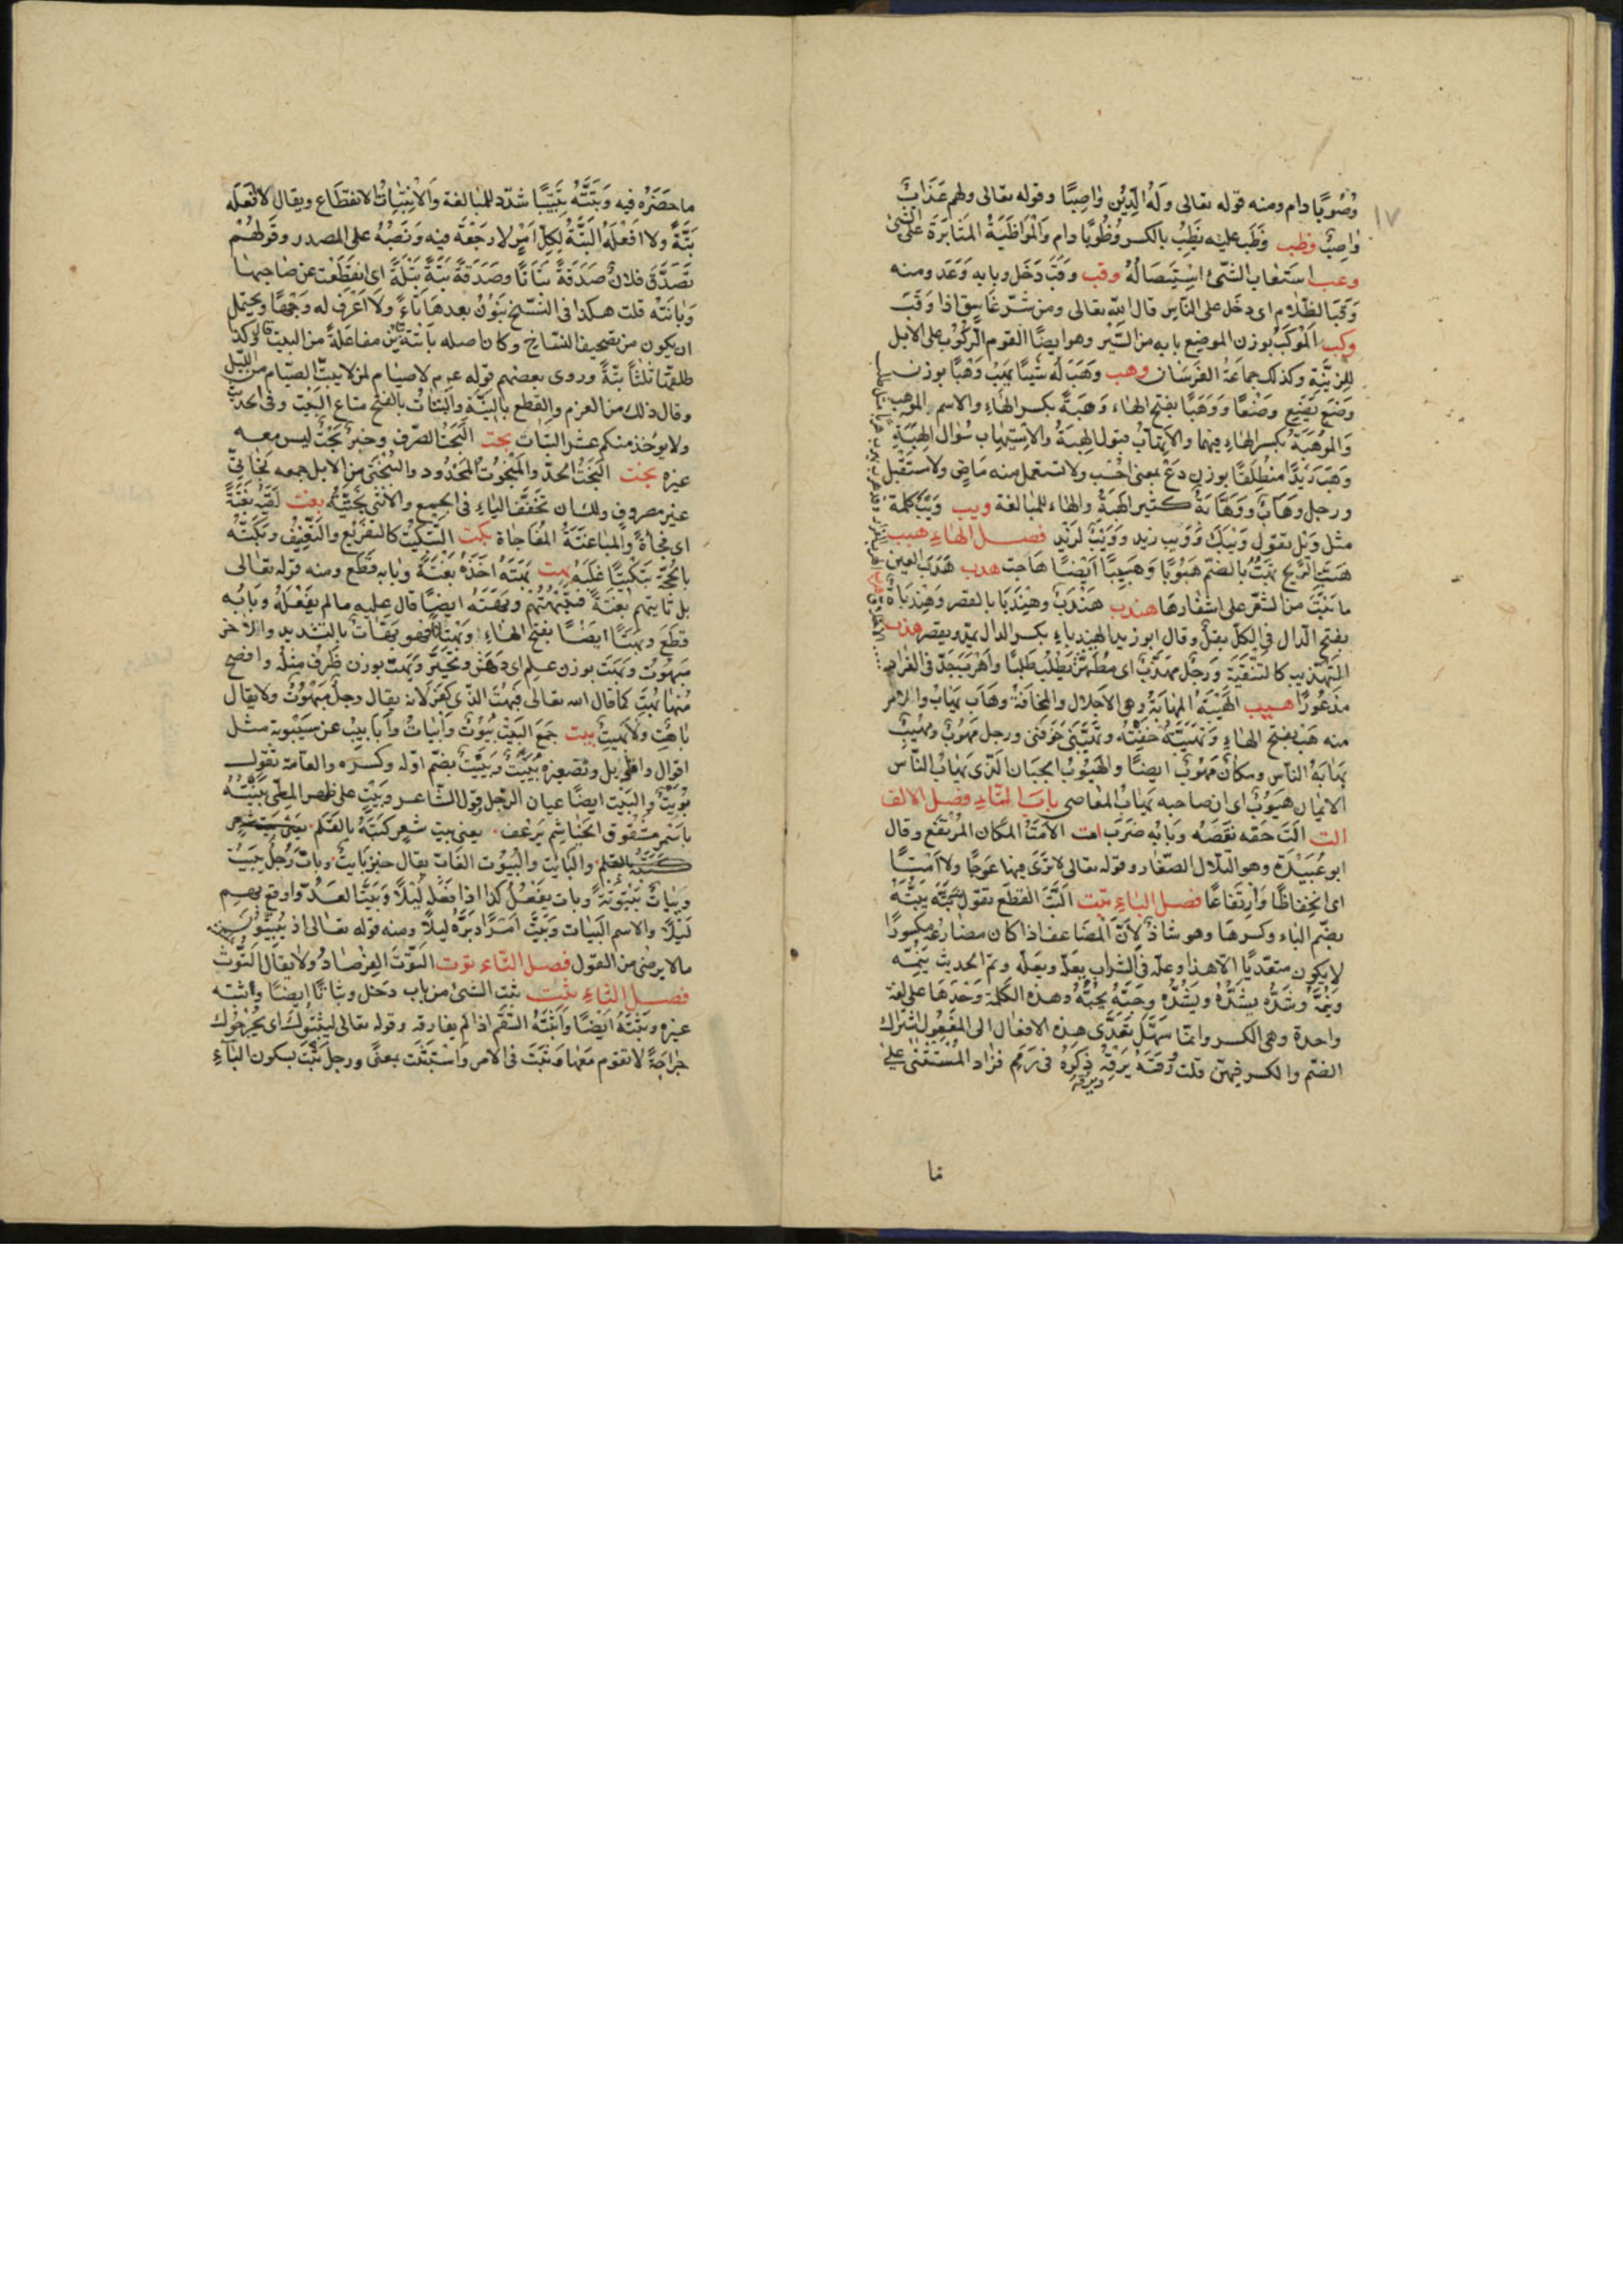 ١٧
وُصُوبًا دام ومنه قوله تعالى وَلَهُ الدِّيْن وٰاصِبًا وقوله تعالى ولهم عَذَابٌ
وٰاصِبٌ وظب وَظَب عليْه يَظِبُ بالكسر وُظُوبًا دام وَالْمُوَاظَبَةُ المُثَابَرَة على الشئ
وعب استَعٰاب الشّئ اسْتِيصَالُهُ وقب وَقَبَ دَخَل وبابه وَعَد ومنه
وَقَبَ الظّلام اى دخَل على النّاس قال الله تعالى ومن شَرّ غَاسِقٍ اذا وَقَبَ
وكب اَلمَوكَبُ بوزن الموضِع بابه من السَّيْر وهو ايضًا القوم الرّكُوب على الابل
للزيّنة وكذلك جماعَةُ الفَرسَان وهب وَهَبَ لَه شَيئًا يَهَبُ وَهْبًا بوزن
وَضَعَ يَضَع وَضْعًا وَوَهَبًا بفتح الهاء وَهِبَةً بكسر الهٰاءِ والاسم المَوْهِب
وَالمَوْهِبَةُ بكسر الهٰاءِ فيهما والاِتّهابُ قبول الهِبَةُ والاِسْتِيهٰاب سُؤال الهِبَةِ
وَهَبْ زَيْدًا مُنطَلِقًا بوزن دَعْ بمعنى احْسَب ولا تستعمل منه مَاضٍ ولا مستَقْبل
ورجل وَهّابٌ ووَهَّابَةٌ كثير الهِبَةُ والهاء للمبالغة ويب وَيْبٌ كلمة
مثل وَيْل تقول وَيْبَكَ وَوَيبَ زيد وَوَيْبٌ لزَيْدٍ فصل الهاءِ هبب
هَبَّتِ الرّيح تَهُبُّ بالضّم هُبُوبًا وَهَبِيبًا اَيْضًا هَاجَت هدب هُدْبُ العين
ما نَبَتَ من الشّعَر على اشفَارهَا هندب هِنْدَبٌ وهِنْدَبَا بالقصر وهِنْدَبَاةٌ
بفتح الدال فى الكلّ بقلٌ وقال ابو زيد الهِنْدِبٰاءِ بكسر الدال يمدّ ويقصر هذب
التَهْذِيب كالتّنقيَة وَرَجُل مهَذَّبٌ اى مُطَهَّر يَطْلُب طَلَبًا واَهْرَبَ جَدّ فى الفرار
مَذعُورًا هيب الهَيْبَةُ المَهَابَةُ وهى الاَجلال والمخافَةُ وهَابَ يَهٰابُ والامر
منه هَبْ بفتح الهاءِ وتَهَيَّبْتُه خفْتُه وتَهَيَّبَنى خَوّفَنى ورجل مَهُوبٌ ومَهِيْبٌ
يَهٰابُهُ النّاس ومكانٌ مَهُوبٌ ايضًا والهَيُوبُ الجَبان الّذى يَهٰابُ النّاس
الايمٰان هَيُوبٌ اى ان صاحبه يَهٰابُ المعٰاصى باب التّاءِ فصل الالف
الت اَلَتَ حَقّه نَقَصَه وبَابُه ضَرَبَ امت الاَمْتُ المَكان المُرتَفع وقال
ابو عُبَيْدَة وهو التّلال الصّغار وقوله تعالى لا تَرَى فيهٰا عوَجًا ولا اَمْتًا
اى انْخِفاظًا وَارْتفَاعًا فصل الباءِ بتت اَلبَتّ القَطْع تقول بَتَّهُ يَبُتُّهُ
بضّم الباء وكسرهَا وهو شاذ لاَنّ المضَاعف اذا كان مضَارعه مكسورًا
لا يكون متعدّيًا الاّ هذا وعلّه فى الشّراب يَعلّه ويعُلّه ونمّ الحديث يَنِمُّه
وَيَنُمّه وشدّه يشُدّهُ ويَشِدّهُ وحَبَّهُ يَحِبُّهُ وهذه الكلمة وَحْدَهَا على لغَة
واحدة وهى الكسر وانمّا سهَّلَ تَعَدّى هذه الافعٰال الى المفعُول اشْتَراك
الضّم والكسر فيهنّ قلت رَمَّه يَرُمّه ذكَرَهُ فى رمم فزَاد المُسْتَثْنى على
ما
ما حَصَرَه فيه وَبَتَّتَهُ تَبْتِيتًا شدّد للمبالغة وَالاْنْبِتٰاتُ الانقِطَاع ويقال لا اَفْعَلَه
بَتَّةً ولا اَفْعَلُهُ البَتَّةَ لِكلّ اَمْرٍ لا رَجْعَةَ فيه وَنَصْبُهُ على المصدر وقَولهُمْ
تَصَدَّقَ فلانٌ صَدَقَةً بَتَاتًا وصَدَقَةً بَتّةً بَتْلَةً اى انقَطَعت عن صَاحبِها
وبٰانَتْه قلت هكذا فى النُّسَخ بنُون بعدهَا تاءٌ ولا اعْرَف له وَجْهًا ويَحْتمِل
ان يكون من تصحيف النّسّاخ وكان اصله بَاتّتهُ مفاعَلةً من البت وكذا
طلقَها ثلثًا بتّةً وروى بعضهم قوله عم لا صيٰام لمن لا يبتّ الصّيام من اللّيل
وقال ذلك من العزم والقطع بالنّيّة والبَتَاتُ بالفتح متاع البَيْت وفى الحديث
ولا يوُخذ منكم عشر البَتات بحت البَحْتُ الصّرْف وخبزٌ بَحْتٌ ليس معه
غيره بخت البَخْتُ الحدّ والمَبْخُوتُ المَحْدُود والبُخْتى من الابل جمعه بَخٰاتىّ
غير مصروف ولك ان تُخفّف الياءِ فى الجمع والاُنثى بُخْتِيَّةٌ بغت لَقِيَهُ بَغْتَةً
اى فَجأةً والمبٰاغتَةُ المُفاجَاة بكت التّبكيْتُ كالتقريْع والتَّعنِيف وبَكّتَهُ
بالحُجّة تَبْكيْتًا غلَبَهُ بهت بَهَتَهُ اَخَذَهُ بَغْتَةً وبٰابه قَطَع ومنه قوله تعٰالى
بل تاتيهم بَغتَةً فَتَبْهَتُهُمْ وبَهَتَهُ ايضًا قال عليه ما لم يفعَلْهُ وبَابُه
قَطعَ وبَهَتًا ايضًا بفتح الهٰاءِ وبُهْتَانًا فهو بَهّاتٌ بالتشديد والاخر
مَبْهُوتٌ وبَهِتَ بوزن عَلِم اى دَهِشَ وتَحَيَّرَ وبَهُتَ بوزن ظَرُفَ مثلُه وافصح
مُنهٰا بُهِتَ كما قال الله تعالى فَبُهِتَ الذّى كَفَرَ لانه يقال رجلٌ مَبْهُوْتٌ ولا يقال
بٰاهت ولا بَهِيتٌ بيت جَمَع البَيْتُ بُيُوتٌ واَبيٰاتٌ واَبَابيتُ عن سيْبويه مثل
اقوال واقاويل وتصغيره بُيَيْتٌ وَبِيَيْتٌ بضّم اوّله وكسره والعامّة تقول
بُوَيْتٌ والبَيْت ايضًا عيال الرّجل وقول الشّاعر وبَيْت على ظهر المطىّ بَنَيْتُهُ
باسْمر مشْقوق الخيٰاشيم يَرعَف. يعنى بيت شعْر كتبَهُ بالقَلم
والبَايت والبَيُوت الغابّ يقال خبز بَايتٌ وباتَ رَجُلٌ يبيْت
وبَيٰاتٌ بَيْتُوتَةً وبات يفعَلُ كذا اذا فعَلَه لَيْلاً وبَيّت العَدُوّ اوقع بهم
لَيْلاً والاسم البَيٰات وبَيَّت اَمْرًا دَبّره ليلاً ومنه قوله تعالى اذ يُبَيِّتُوْنَ
ما لا يرضٰى من القول فصل التّاءِ توت التُّوْتُ الفِرْصَادُ ولا يقال التُّوْث
فصل الثّاءِ ثبت ثبت الشئ من باب دَخل وثبَاتًا ايضًا واثبته
غيره وثَبَّتَهُ اَيْضًا وَاَثْبَتَهُ السّقَم اذا لم يفارقه وقوله تعالى ليُثْبِتُوكَ اى يَجْرَحُوك
جرَاحَةً لا تقوم مَعَهٰا وتَثبَتَ فى الامر وَاسْتَثبَتَ بمعنًى ورجلٌ ثَبْتٌ بسكون البٰاءِ